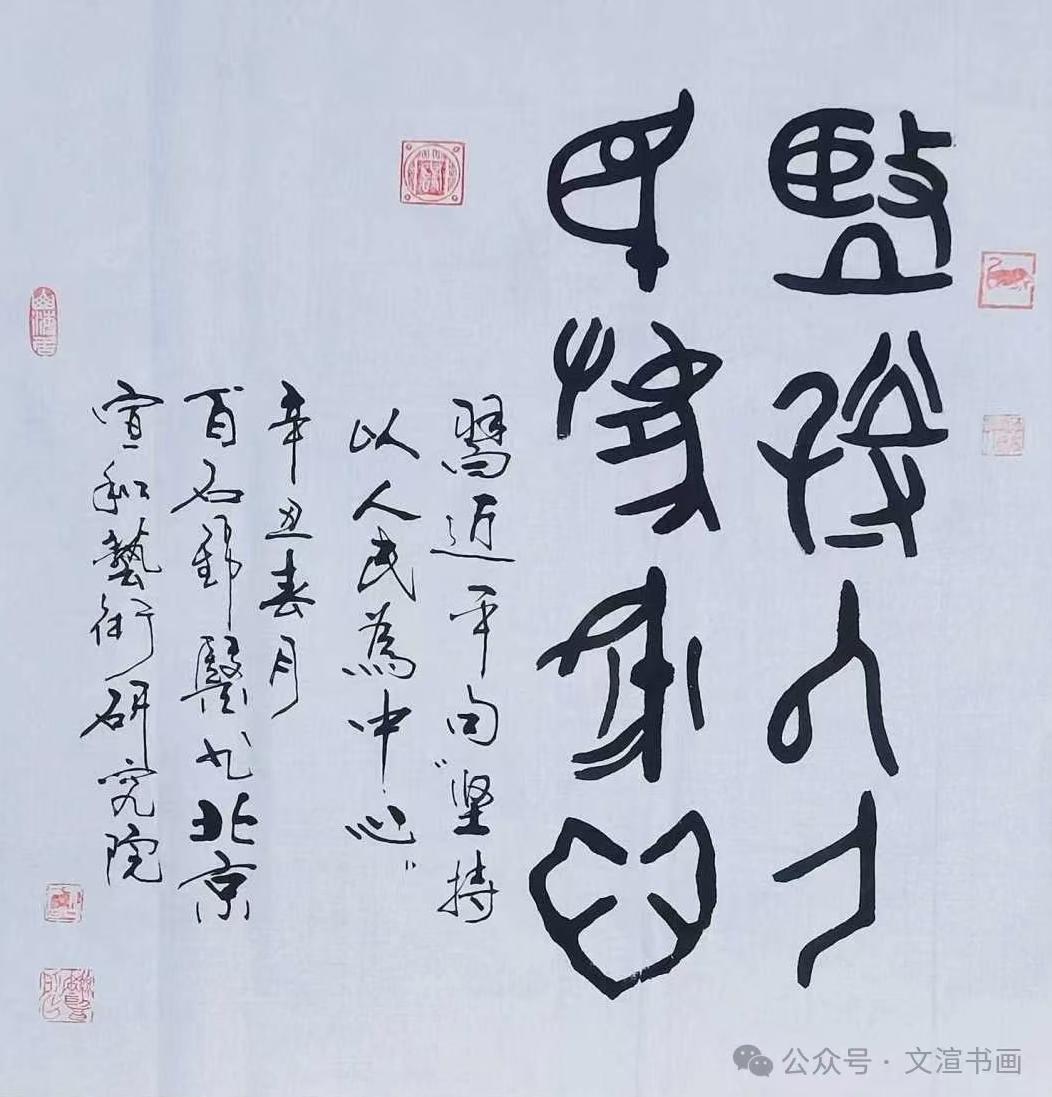 堅持以人
民為中心
習近平句"坚持
以人民為中心"
辛丑春月
百 醫於北京
宣和藝術研究院
公众号 · 文渲书画